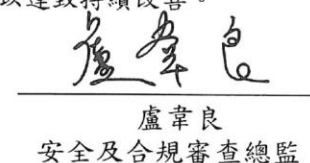 以達致持續改善。
盧韋良
盧韋良
安全及合規審查總監